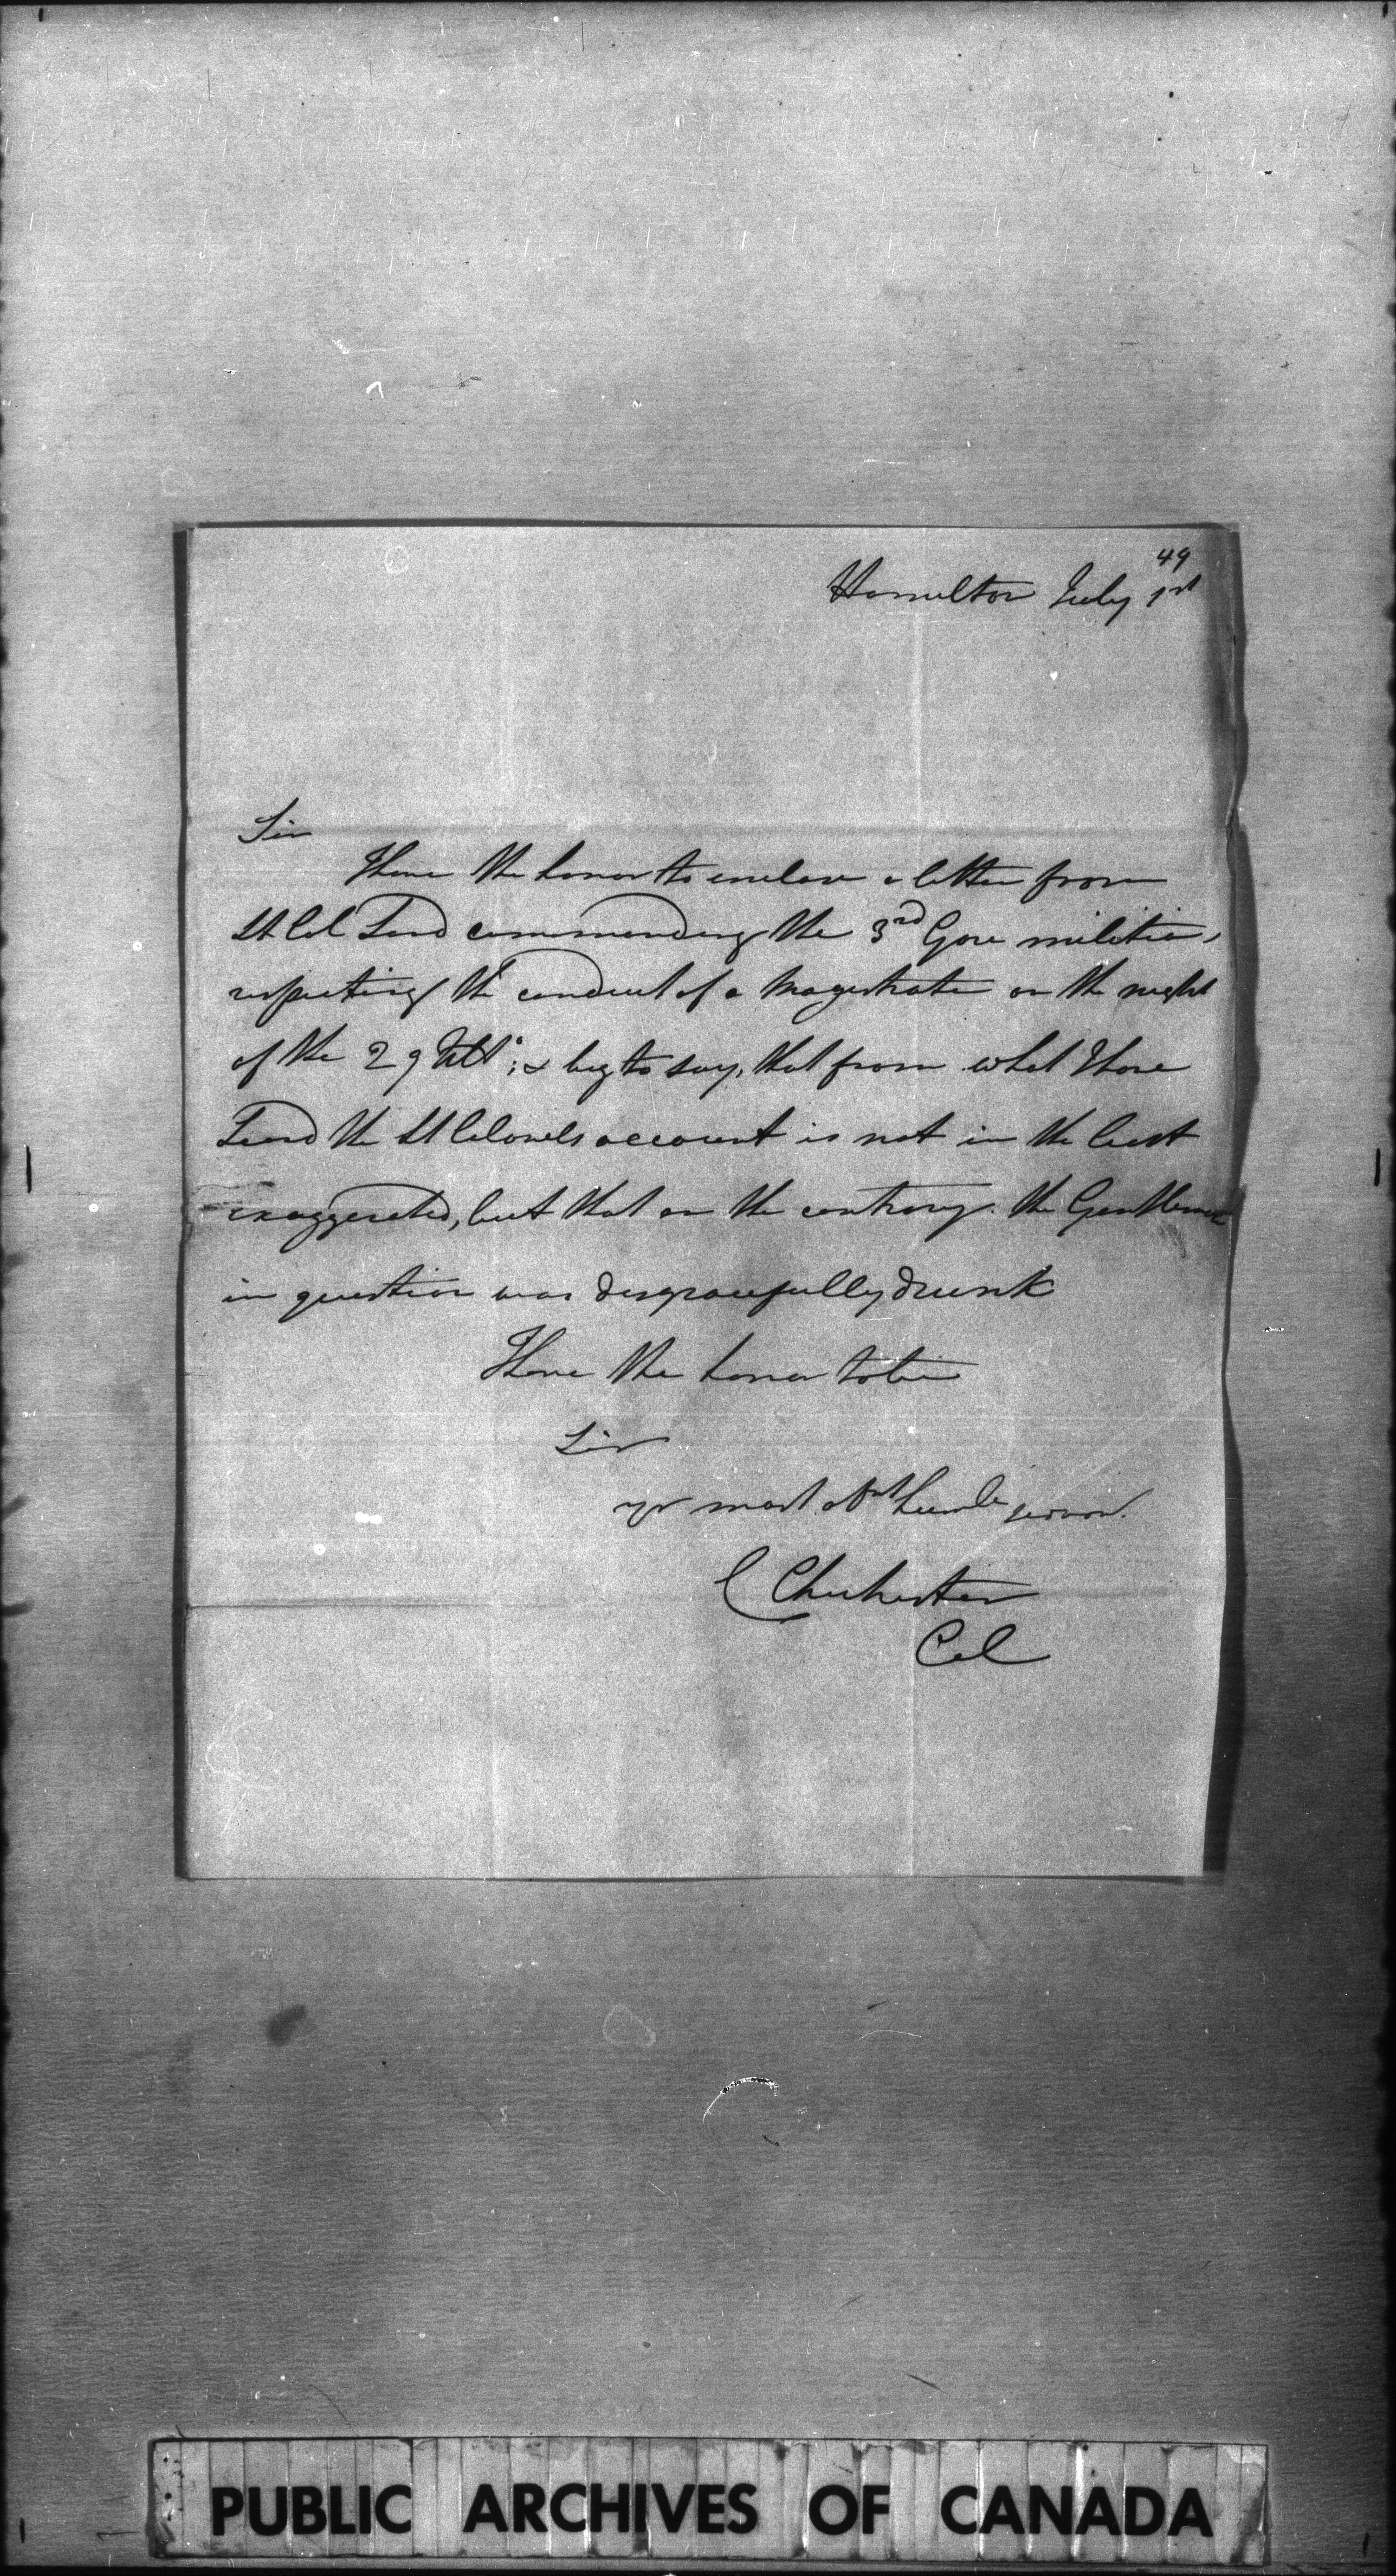 49
Hamilton July 1st
Sir
I have the honor to enclose a letter from
Lt Col Land commanding the 3rd Gore militia,
respecting the conduct of a Magistrate on the night
of the 29 Ulto; & beg to say, that from what I have
the Lt Colonels account is not in the least
exaggerated, but that on the contrary. the Gentleman
in question was disgracefully drunk
I have the honor to be
Sir
yr most obnt humble servant.
C Chichester
Col
PUBLIC ARCHIVES OF CANADA